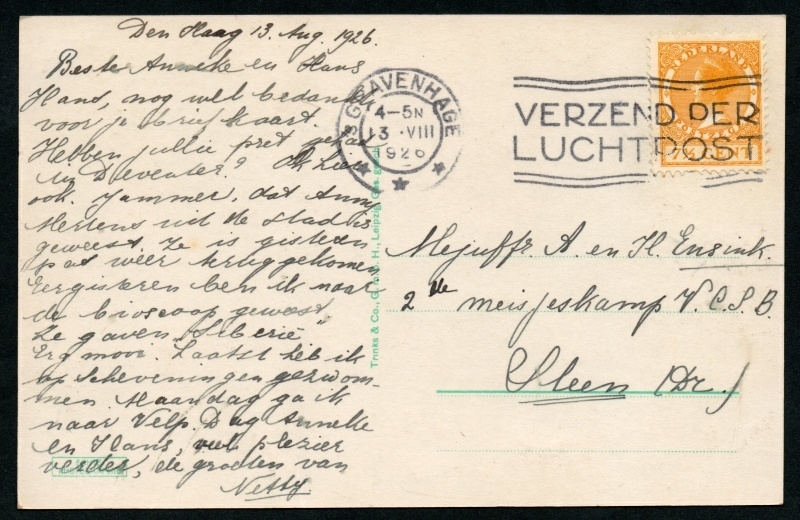 Den Haag 13 Aug. 1926.
Beste Anneke en Hans
Hans, nog wel bedankt
voor je briefkaart.
Hebben jullie pret gehad
in Deventer? Ik
ook. Jammer, dat Anny
Mertens uit de stad is
geweest. Ze is gisteren
pas weer teruggekomen
Eergisteren ben ik naar
de bioscoop geweest
Ze gaven „Siberië"
Erg mooi. Laatst heb ik
op Scheveningen gezwom-
men Maandag ga ik
naar Velp. Dag Anneke
en Hans, veel plezier
verder, de groeten van
Netty
'S GRAVENHAGE
4-5N
13 VIII
1926
VERZEND PER
LUCHTPOST
NEDERLAND
7½ CENT
Trinks & Co., G. m. b. H., Leipzig.
Mejuffr A. en H. Ensink.
2de meisjeskamp V.C.S.B.
Sleen (Dr.)